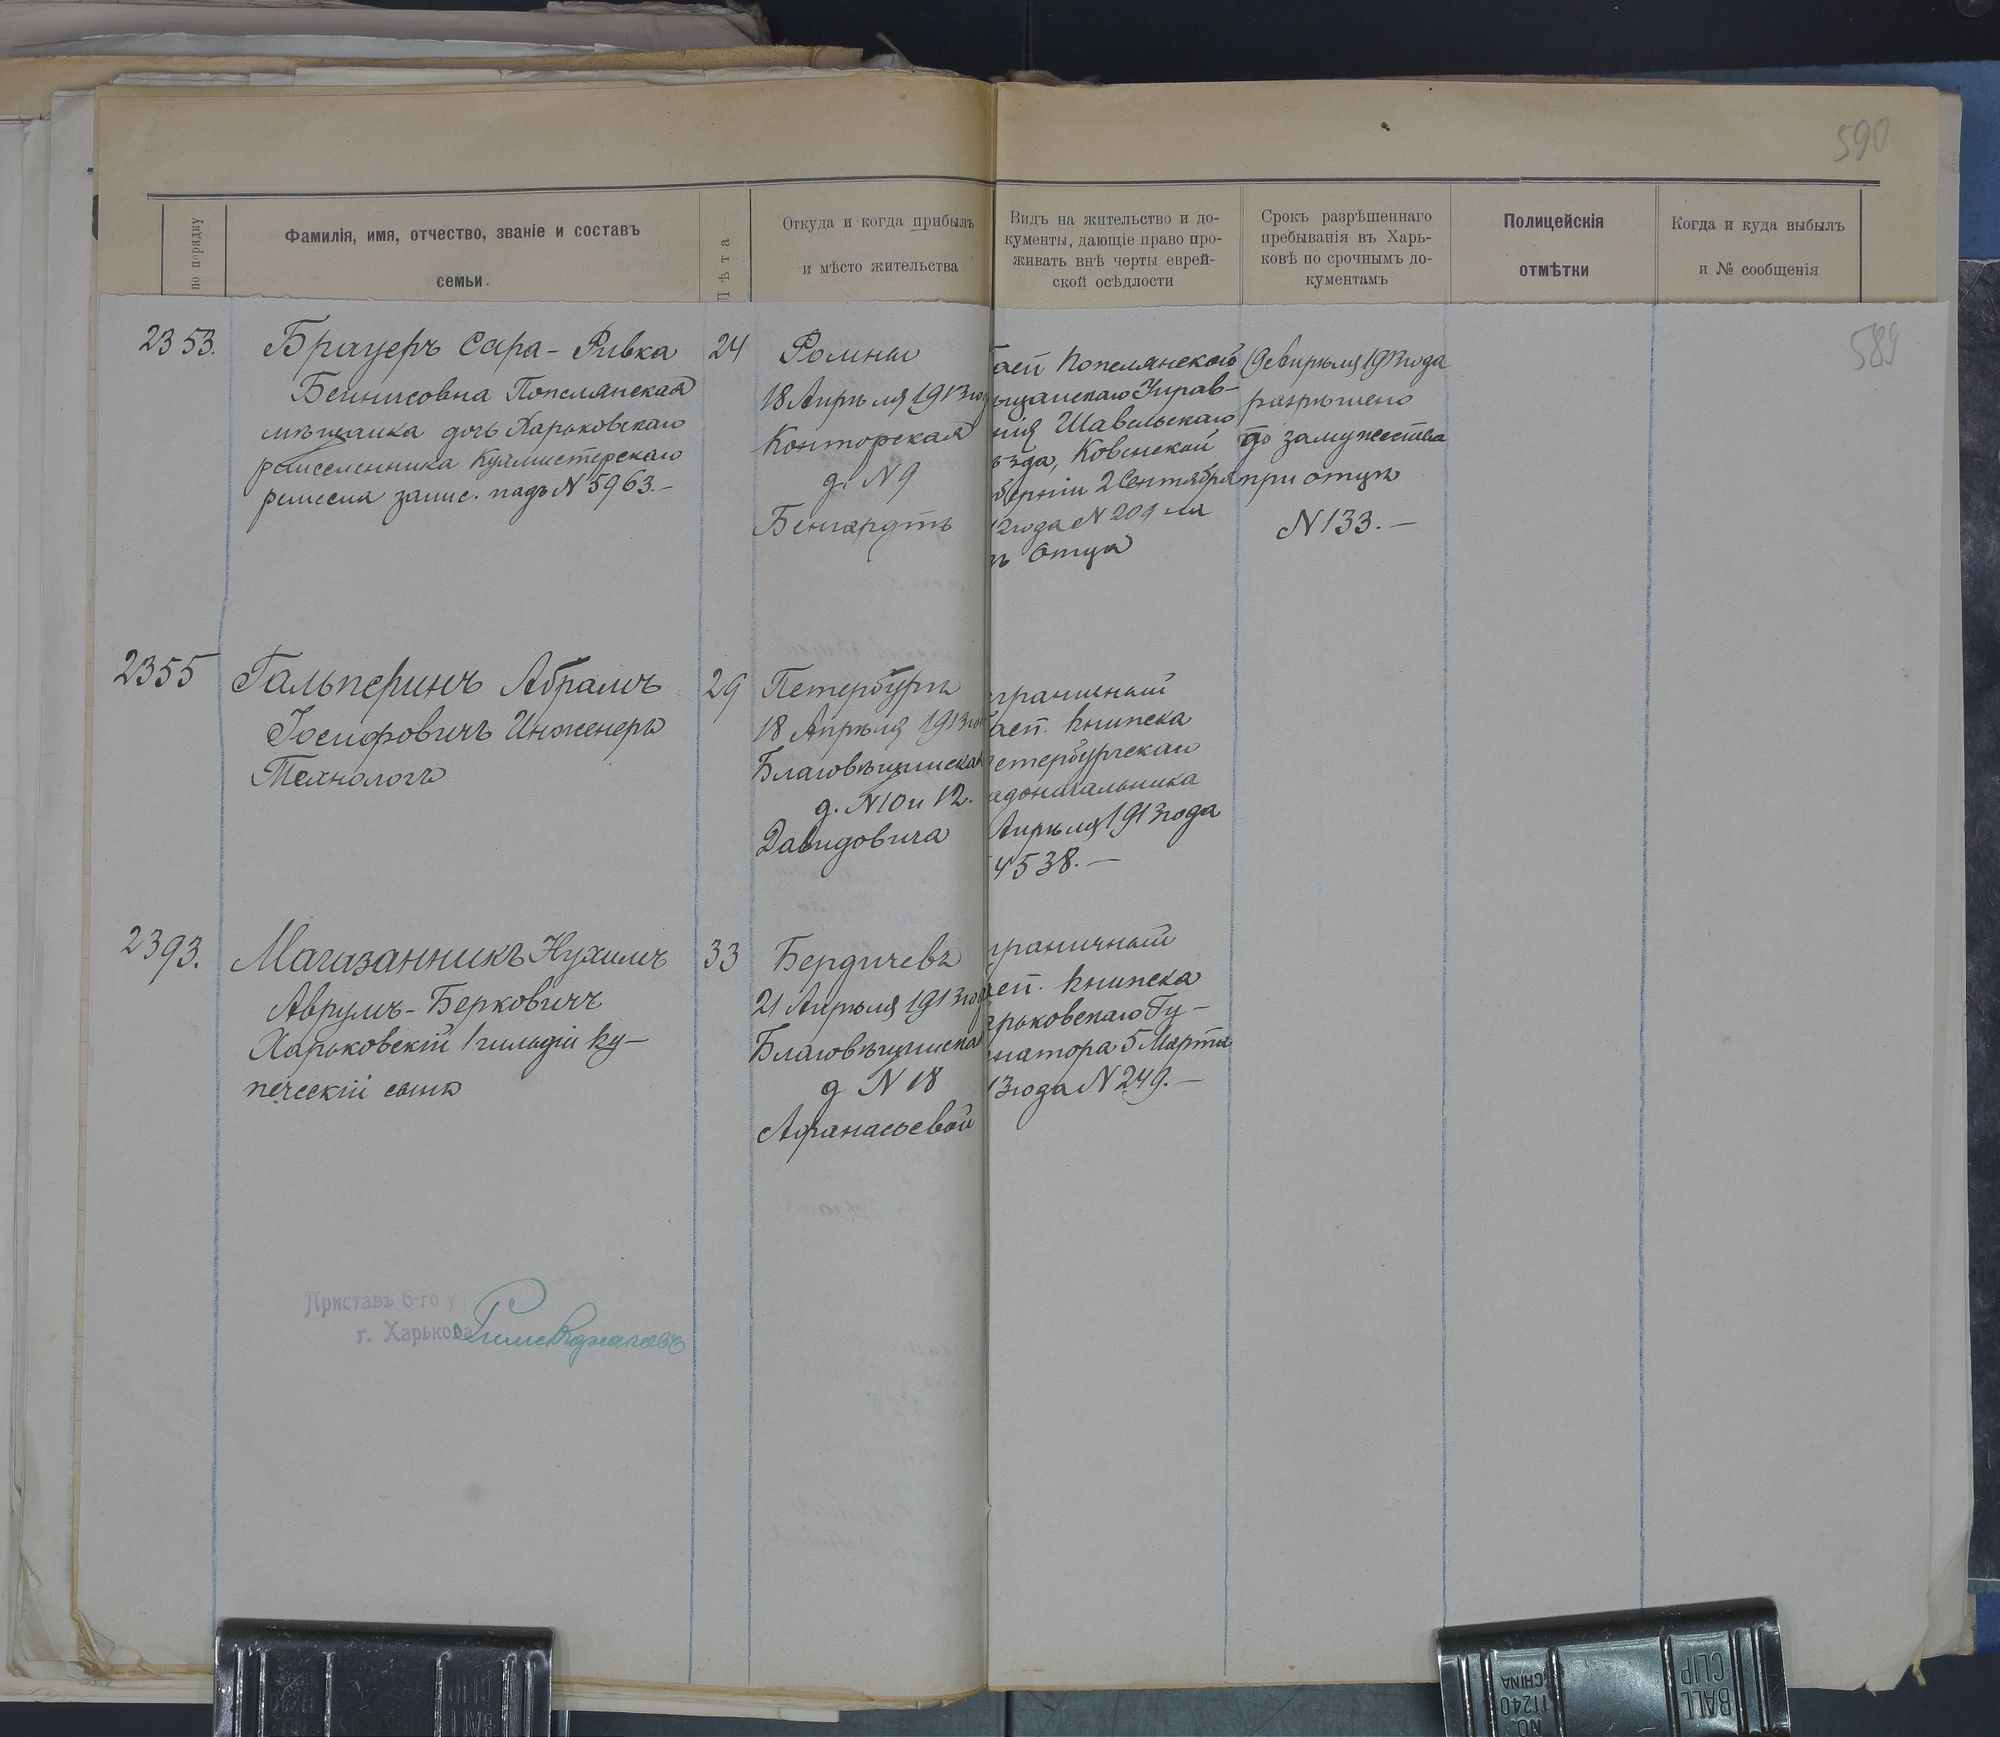 590
по порядку
Фамилія, имя, отчество, званіе и составъ
семьи.
Лѣта
Откуда и когда прибылъ
и мѣсто жительства
Видъ на жительство и до-
кументы, дающіе право про-
живать внѣ черты еврей-
ской осѣдлости
Срокъ разрѣшеннаго
пребыванія въ Харь-
ковѣ по срочнымъ до-
кументамъ
Полицейскія
отмѣтки
Когда и куда выбылъ
и № сообщенія
589
2353.
Брауеръ Сара-Ривка
Бейнисовна Попелянская
мѣщанка дочь Харьковскаго
ремесленника Кухмистерскаго
ремесла запис. подъ N 5963.-
24
Ромны
18 Апрѣля 1913 го
Конторская
д. N 9
Бенгардтъ
Попелянскаго
Управ-
нія Шавельскаго
ѣзда, Ковенской
берніи 2 Сентября
12 года N 209
Отца
19 Апрѣля 1913 года
разрѣшено
до замужества
при отцѣ
N 133.-
2355
Гальперинъ Абрамъ
Іосифовичъ Инженеръ
Технологъ
29
Петербургъ
18 Апрѣля 1913 го
Благовѣщенская
д. N 10 и 12.
Давидовича
граничный
асп. книжка
етербургскаго
адоначальника
Апрѣля 1913 года
4538.-
2393.
Магазанникъ Нухимъ
Аврумъ-Берковичъ
Харьковскій 1 гильдіи ку-
печескій сынъ
33
Бердичевъ
21 Апрѣля 1913 го
Благовѣщенская
д N 18
Афанасьевой
граничный
асп. книжка
арьковскаго Гу-
натора 5 Марта
13 года N 249.-
Приставъ 6-го уч
г. Харькова